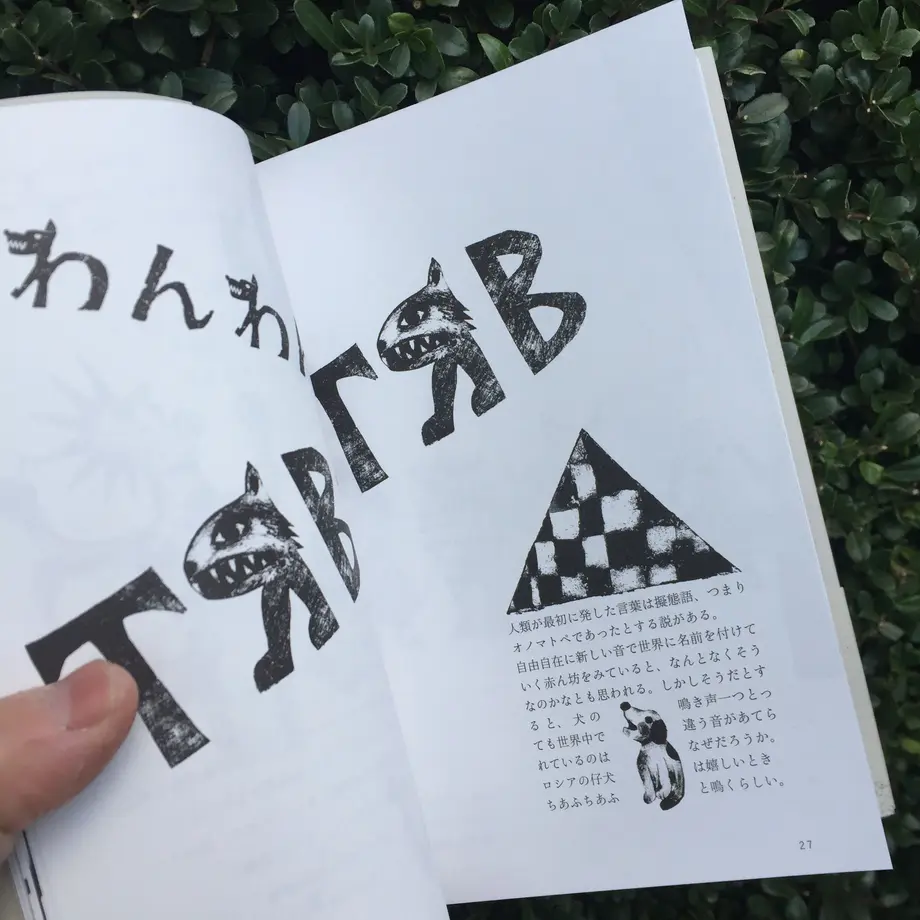 わんわ
ТЯВ
ТЯВ
人類が最初に発した言葉は擬態語、つまり
オノマトペであったとする説がある。
自由自在に新しい音で世界に名前を付けて
いく赤ん坊をみていると、なんとなくそう
なのかなとも思われる。しかしそうだとす
ると、犬の 鳴き声一つとっ
ても世界中で 違う音があてら
れているのは なぜだろうか。
ロシアの仔犬 は嬉しいとき
ちあふちあふ と鳴くらしい。
27